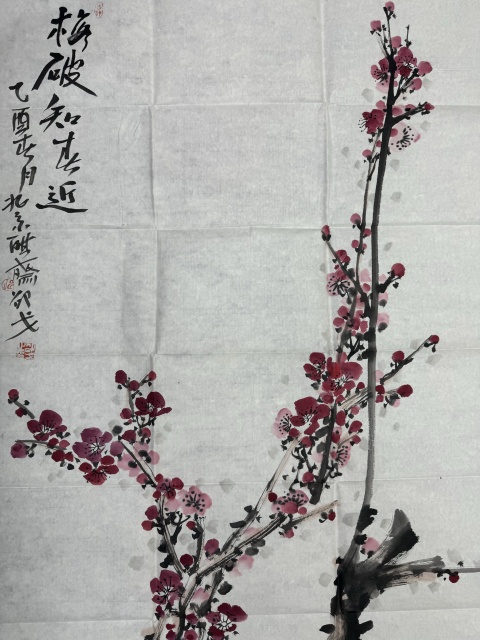 梅破知春近
乙酉春月北京 斋 戈